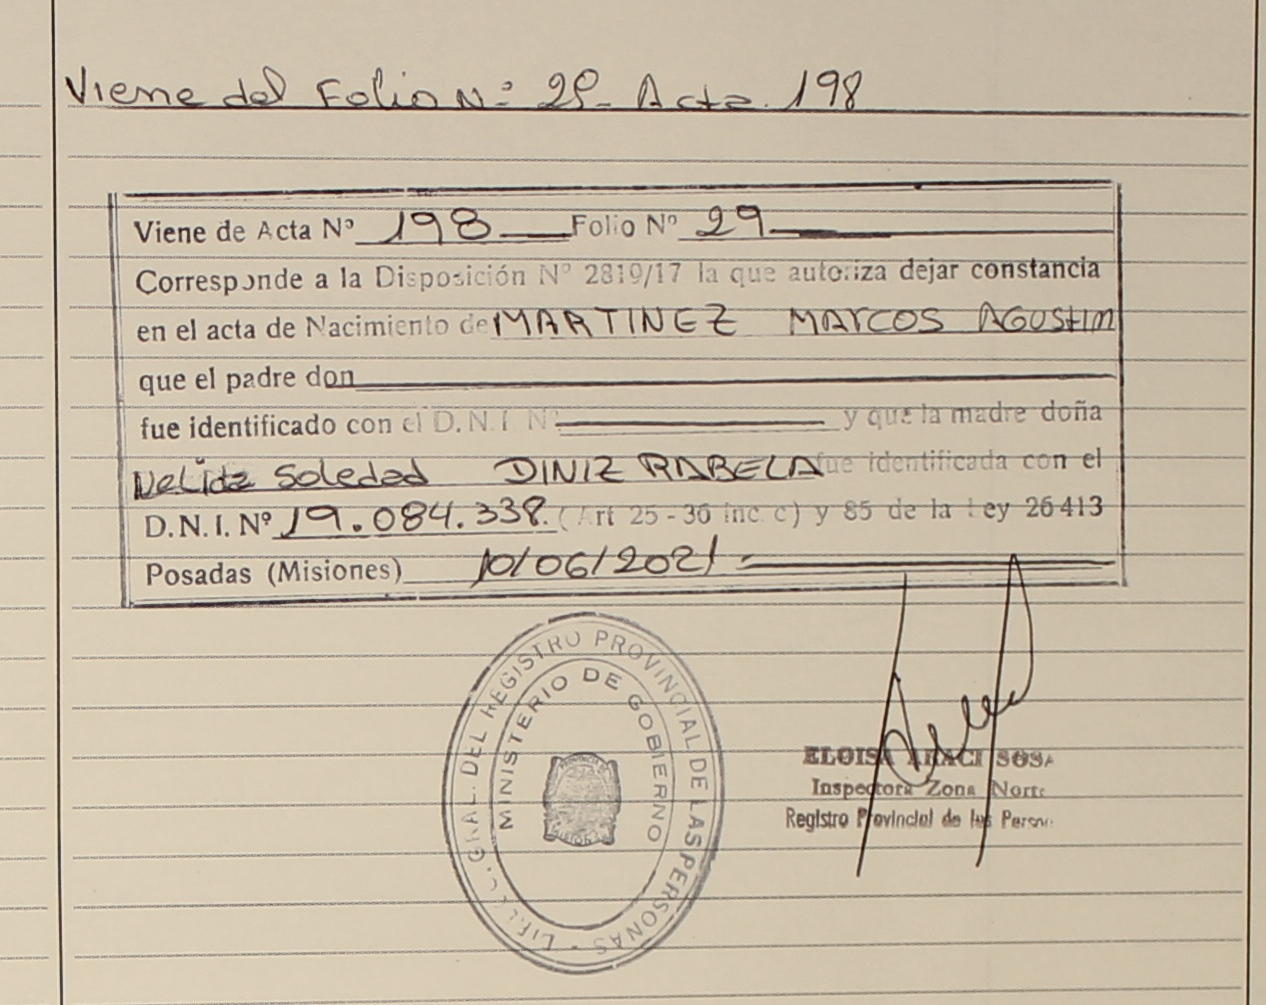 Viene del Folio Nº 29- Acta 198
Viene de Acta Nº 198 Folio Nº 29
Corresponde a la Disposición Nº 2819/17 la que autoriza dejar constancia
en el acta de Nacimiento de MARTINEZ MARCOS AGUSTIN
que el padre don
fue identificado con el D.N.I Nº y que la madre doña
Nelida Soledad DINIZ RABELA fue identificada con el
D.N.I. Nº 19.084.338. (Art 25 - 36 inc. c) y 85 de la Ley 26413
Posadas (Misiones) 10/06/2021
GRAL. DEL REGISTRO PROVINCIAL DE LAS PERSONAS
MINISTERIO DE GOBIERNO
ELOISA ARACI SOSA
Inspectora Zona Norte
Registro Provincial de las Person